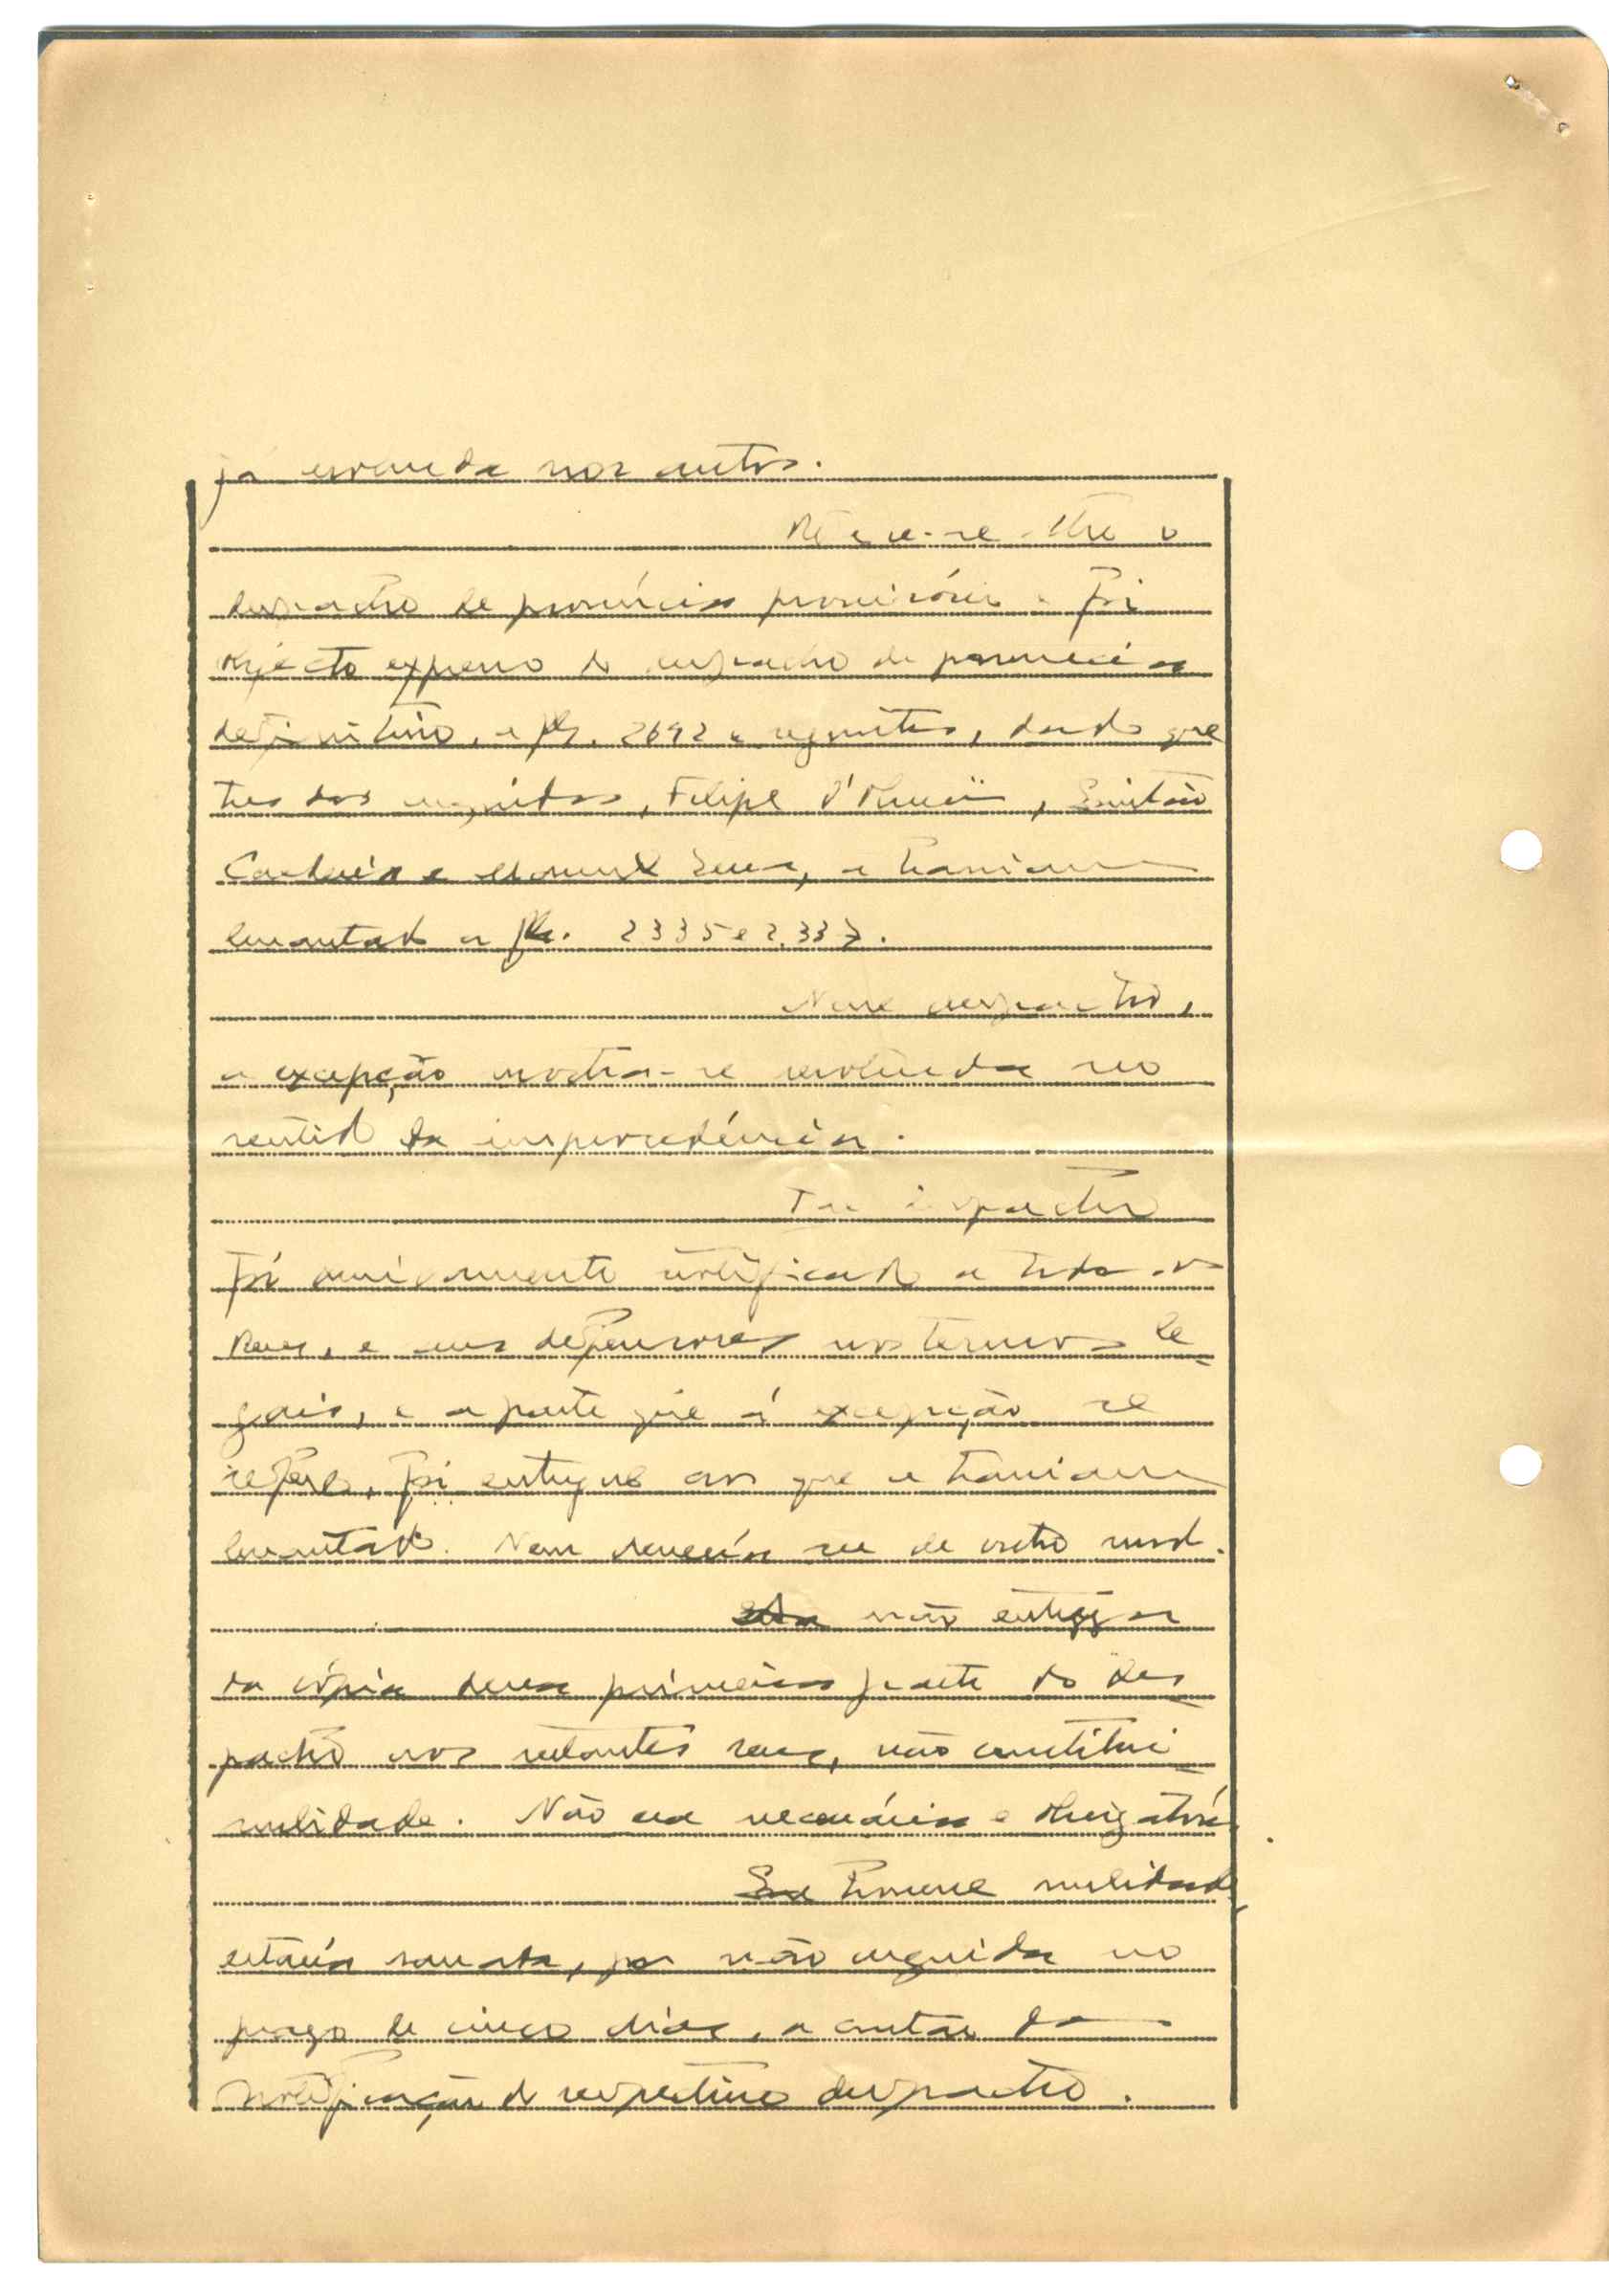 já nos autos.
o
despacho de pronúncia provisória e foi
objecto expresso do despacho de pronúncia
definitivo, a fls. 2692 e seguintes, dado que
tres dos arguidos, Filipe
e Manuel a haviam
levantado a fls. 2335 e 2.337.
Nesse despacho,
a excepção mostra-se resolvida no
sentido da improcedência.
Tal despacho
foi notificado a todos os
Reus, e seus defensores nos termos le-
gais, e a parte que à excepção se
refere, foi entregue aos que a haviam
levantado. Nem deveria ser de outro modo.
A não entrega
da cópia dessa primeira parte do des-
pacho aos restantes reus, não constitui
nulidade. Não era necessária e obrigatória.
Se houvesse nulidade
estaria sanada, por não arguida no
prazo de cinco dias, a contar da
notificação do respectivo despacho.